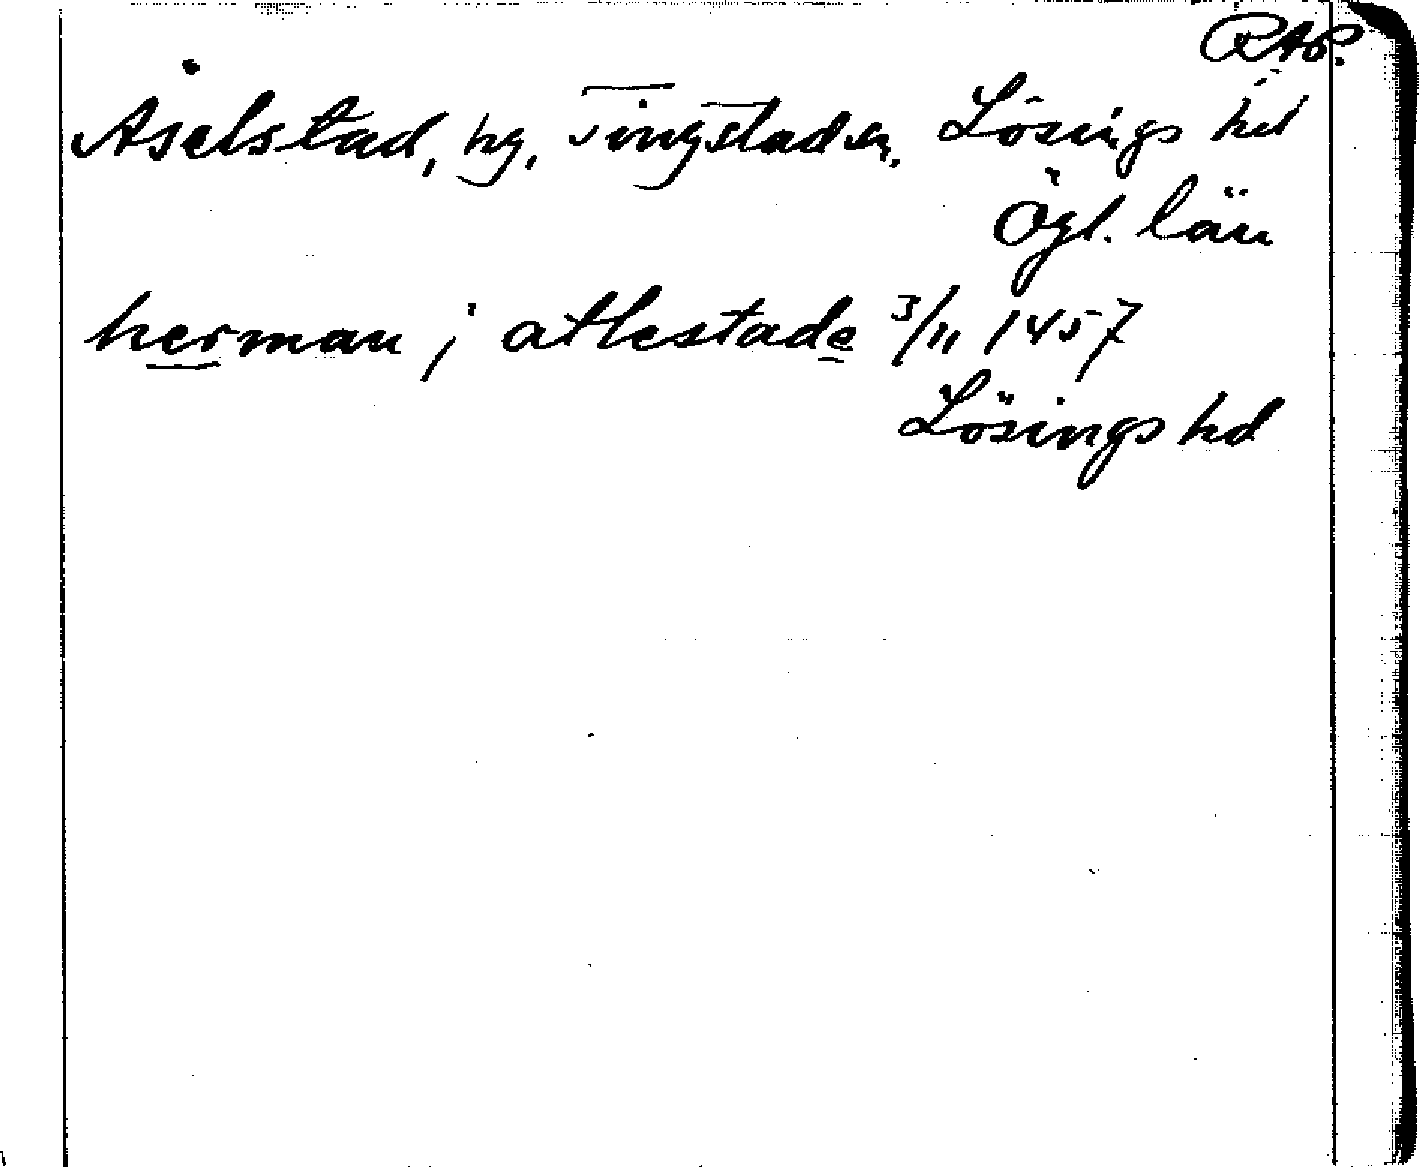 RAP.
Åselstad, hg, Tingstad sn, Lösings hd
Ögl. län
herman j atlestade 3/11 1457
Lösings hd